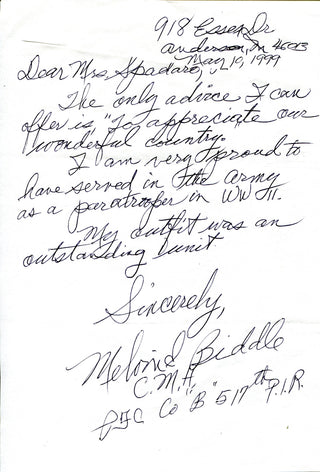 918 Essex Dr
Anderson, In 46013
May 19, 1999
Dear Mrs Spadaro,
The only advice I can
offer is "To appreciate our
wonderful country."
I am very proud to
have served in the Army
as a paratrooper in WW II.
My outfit was an
outstanding unit
Sincerely,
Melvin E Biddle
C.M.H.
PFC Co "B" 517th P.I.R.